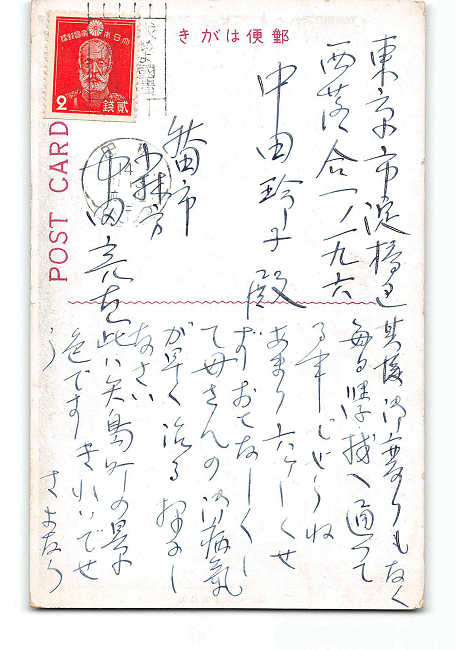 郵便はがき
大日本帝國郵便
2 貳錢
POST CARD
東京市淀橋區
西落合一ノ一九六
中田玲子殿
市
小林方
中田
其後御変りもなく
毎日學校へ通って
る事でせうね
あまり六ヶしくせ
ずおとなしくし
て母さんの御病氣
が早く治る様にし
なさい
此ハ矢島町の景
色ですきれいでせ
う さよなら